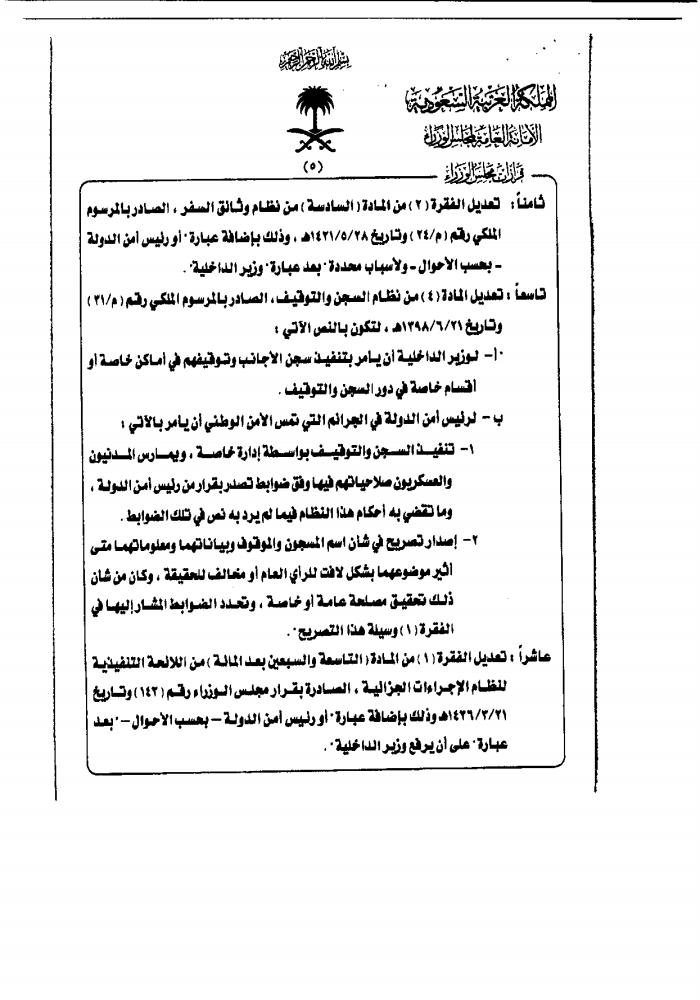 بسم الله الرحمن الرحيم
المملكة العربية السعودية
الأمانة العامة لمجلس الوزراء
(٥)
قرارات مجلس الوزراء
ثامناً : تعديل الفقرة (٢) من المادة (السادسة) من نظام وثائق السفر ، الصادر بالمرسوم
الملكي رقم (م/٢٤) وتاريخ ١٤٢١/٥/٢٨هـ ، وذلك بإضافة عبارة "أو رئيس أمن الدولة
- بحسب الأحوال - ولأسباب محددة" بعد عبارة "وزير الداخلية" .
تاسعاً : تعديل المادة (٤) من نظام السجن والتوقيف، الصادر بالمرسوم الملكي رقم (م/٣١)
وتاريخ ١٣٩٨/٦/٢١هـ ، لتكون بالنص الآتي :
"أ- لوزير الداخلية أن يأمر بتنفيذ سجن الأجانب وتوقيفهم في أماكن خاصة أو
أقسام خاصة في دور السجن والتوقيف .
ب - لرئيس أمن الدولة في الجرائم التي تمس الأمن الوطني أن يأمر بالآتي :
١- تنفيذ السجن والتوقيف بواسطة إدارة خاصة ، ويمارس المدنيون
والعسكريون صلاحياتهم فيها وفق ضوابط تصدر بقرار من رئيس أمن الدولة ،
وما تقضي به أحكام هذا النظام فيما لم يرد به نص في تلك الضوابط .
٢- إصدار تصريح في شأن اسم المسجون والموقوف وبياناتهما ومعلوماتهما متى
أثير موضوعهما بشكل لافت للرأي العام أو مخالف للحقيقة ، وكان من شأن
ذلك تحقيق مصلحة عامة أو خاصة ، وتحدد الضوابط المشار إليها في
الفقرة (١) وسيلة هذا التصريح" .
عاشراً : تعديل الفقرة (١) من المادة (التاسعة والسبعين بعد المائة) من اللائحة التنفيذية
لنظام الإجراءات الجزائية ، الصادرة بقرار مجلس الوزراء رقم (١٤٢) وتاريخ
١٤٣٦/٣/٢١هـ وذلك بإضافة عبارة "أو رئيس أمن الدولة - بحسب الأحوال-" بعد
عبارة "على أن يرفع وزير الداخلية" .